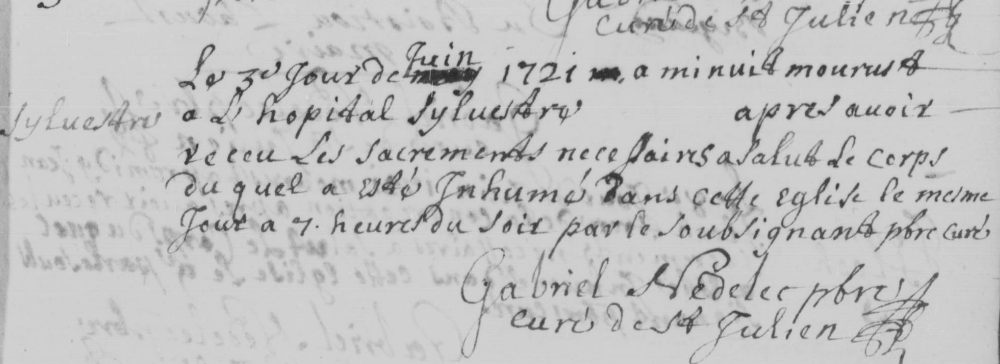 curé de St Julien
Le 3e Jour de Juin 1721 a minuit mourust
Sylvestre
a L hopital Sylvestre apres avoir
receu Les sacrements necessaires a salut Le corps
du quel a esté Inhumé dans cette Eglise le mesme
Jour a 7. heures du soir par le soubsignant pbre curé
Gabriel Nédelec pbre
curé de St Julien